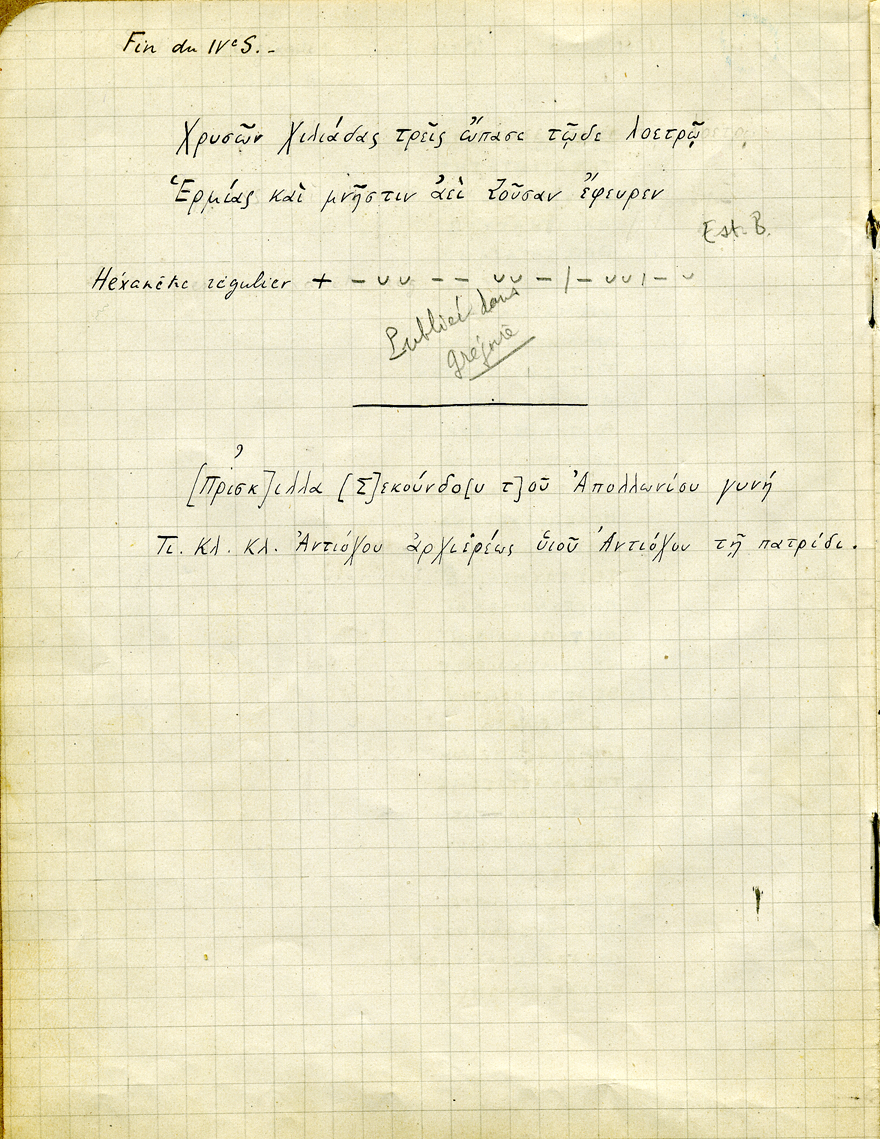 Fin du IVe S. -
Χρυσῶν χιλιάδας τρεῖς ὤπασε τῷδε λοετρῷ
Ἑρμίας καὶ μνῆστιν ἀεὶ ζοῦσαν ἔφευρεν
Est. B.
Héxamètre régulier + – ∪∪ – – ∪∪ – | – ∪∪ | – ∪
Publié dans
Grégoire
[Πρίσκ]ιλλα [Σ]εκούνδο[υ τ]οῦ Ἀπολλωνίου γυνή
Τι. Κλ. Κλ. Ἀντιόχου ἀρχιερέως ὑιοῦ Ἀντιόχου τῇ πατρίδι.